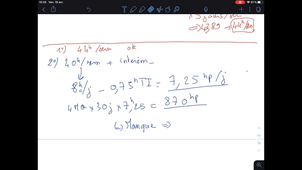 1°) 44h/sem ok
2°) 40h/sem + intérim
8h/j - 0,75h TI = 7,25 hp/j
4MO x 30j x 7h25 = 870 hp
↳ Manque ⇒